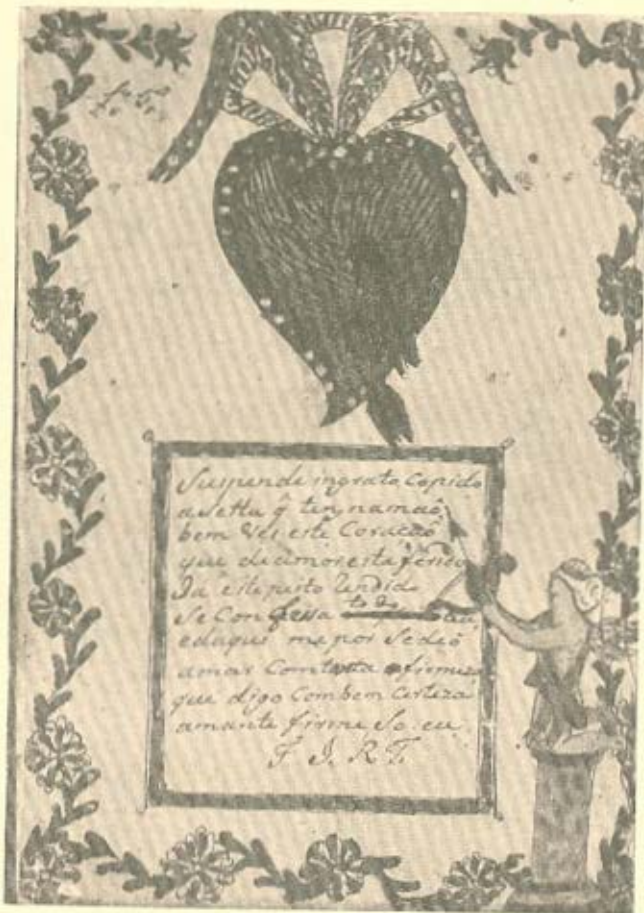 Suspende ingrato Copido
a setta q̃ tens na maõ
bem Ves este Coracaõ
que de amor esta ferido
Ja este peito Rendido
Se Confessa todo teu
e daqui me por
amar Com tanta firmeza
que digo Com bem Certeza
amante firme So eu.
F J. R T.